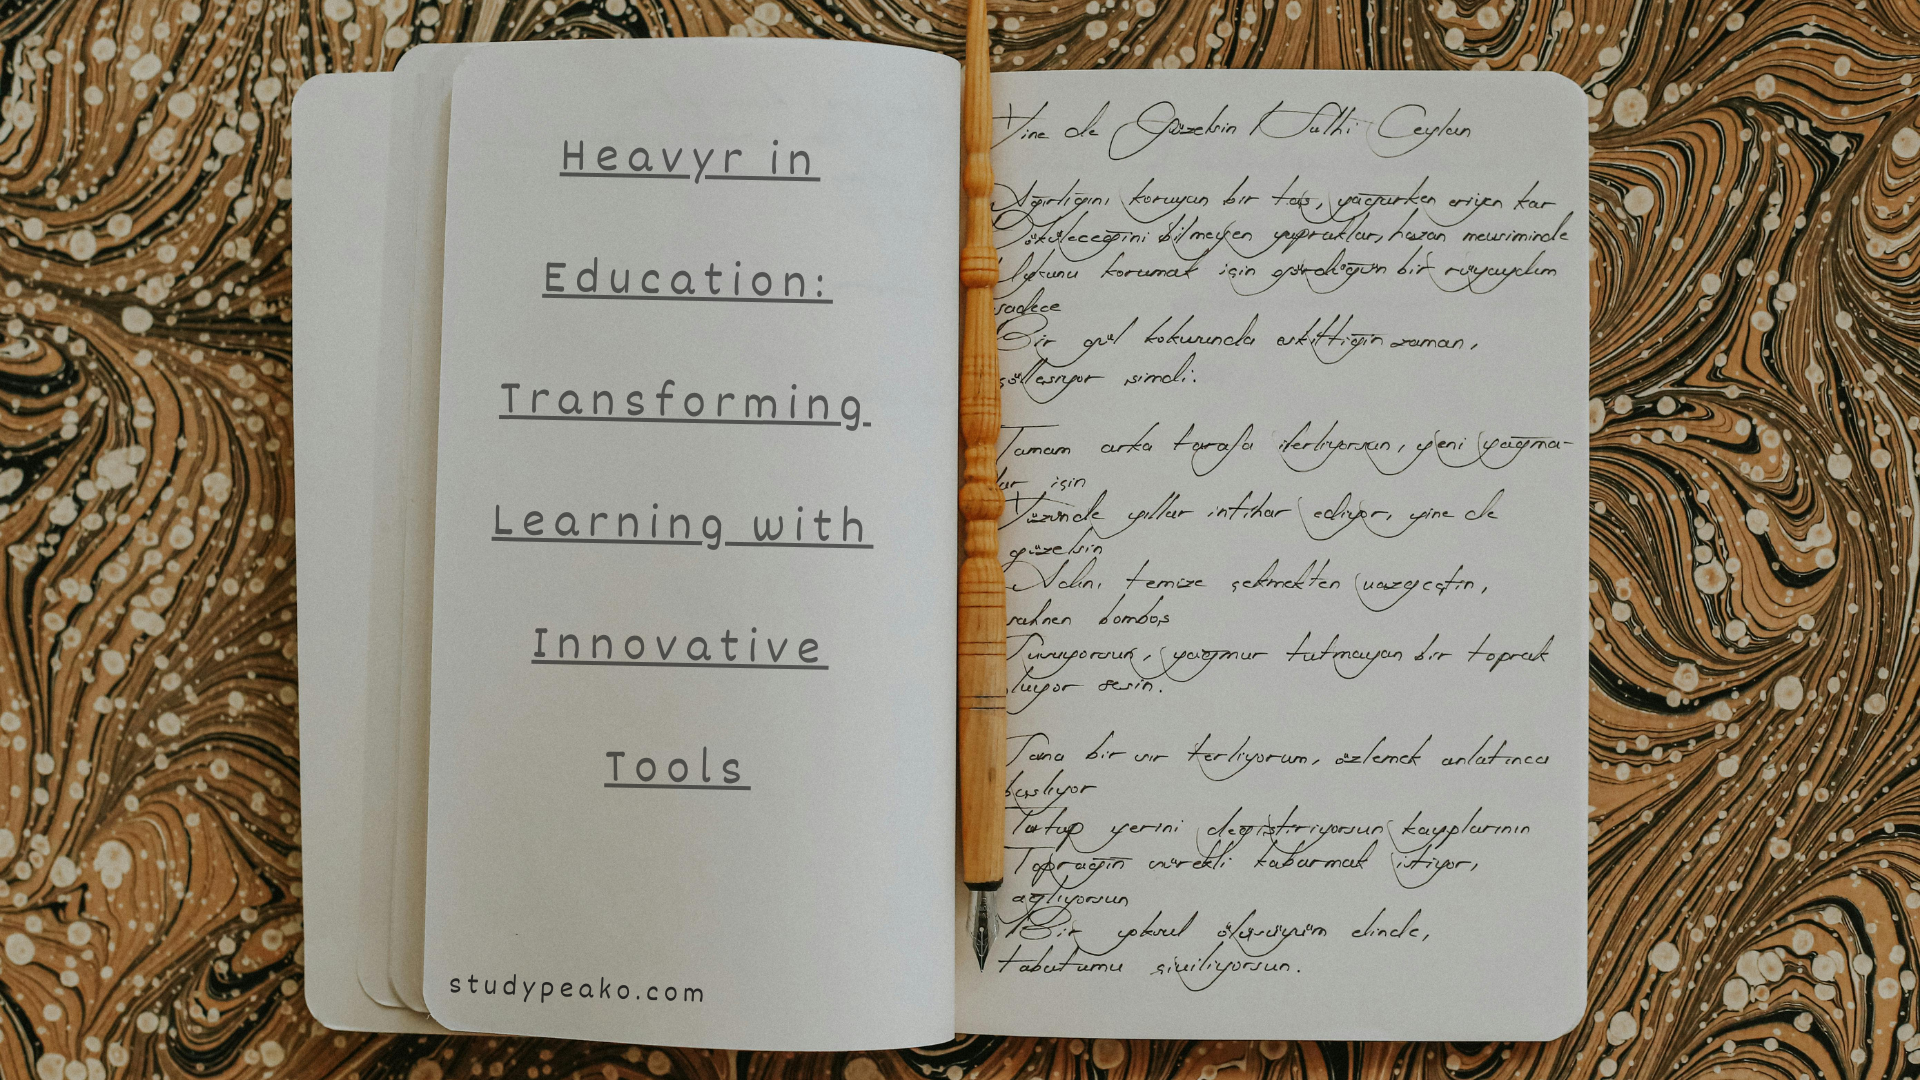 Heavyr in
Education:
Transforming
Learning with
Innovative
Tools
studypeako.com
Yine de Güzelsin Ceylan
Ağırlığını koruyan bir taş, yağarken eriyen kar
Döküleceğini bilmeyen yapraklar, hazan mevsiminde
Uykunu korumak için gördüğün bir rüyaydım
sadece
Bir gül kokusunda eskittiğin zaman,
çölleşiyor şimdi.
Tamam arka tarafa ilerliyorsun, yeni yağma-
lar için
Yüzünde yıllar intihar ediyor, yine de
güzelsin
Adını temize çekmekten vazgeçtin,
sahnen bomboş
yağmur tutmayan bir toprak
sesin.
Sana bir sır terliyorum, özlemek anlatınca
başlıyor
Tutup yerini değiştiriyorsun kayıplarının
Toprağın sürekli kabarmak istiyor,
ağlıyorsun
Bir yoksul ölüsüyüm elinde,
tabutumu çiviliyorsun.